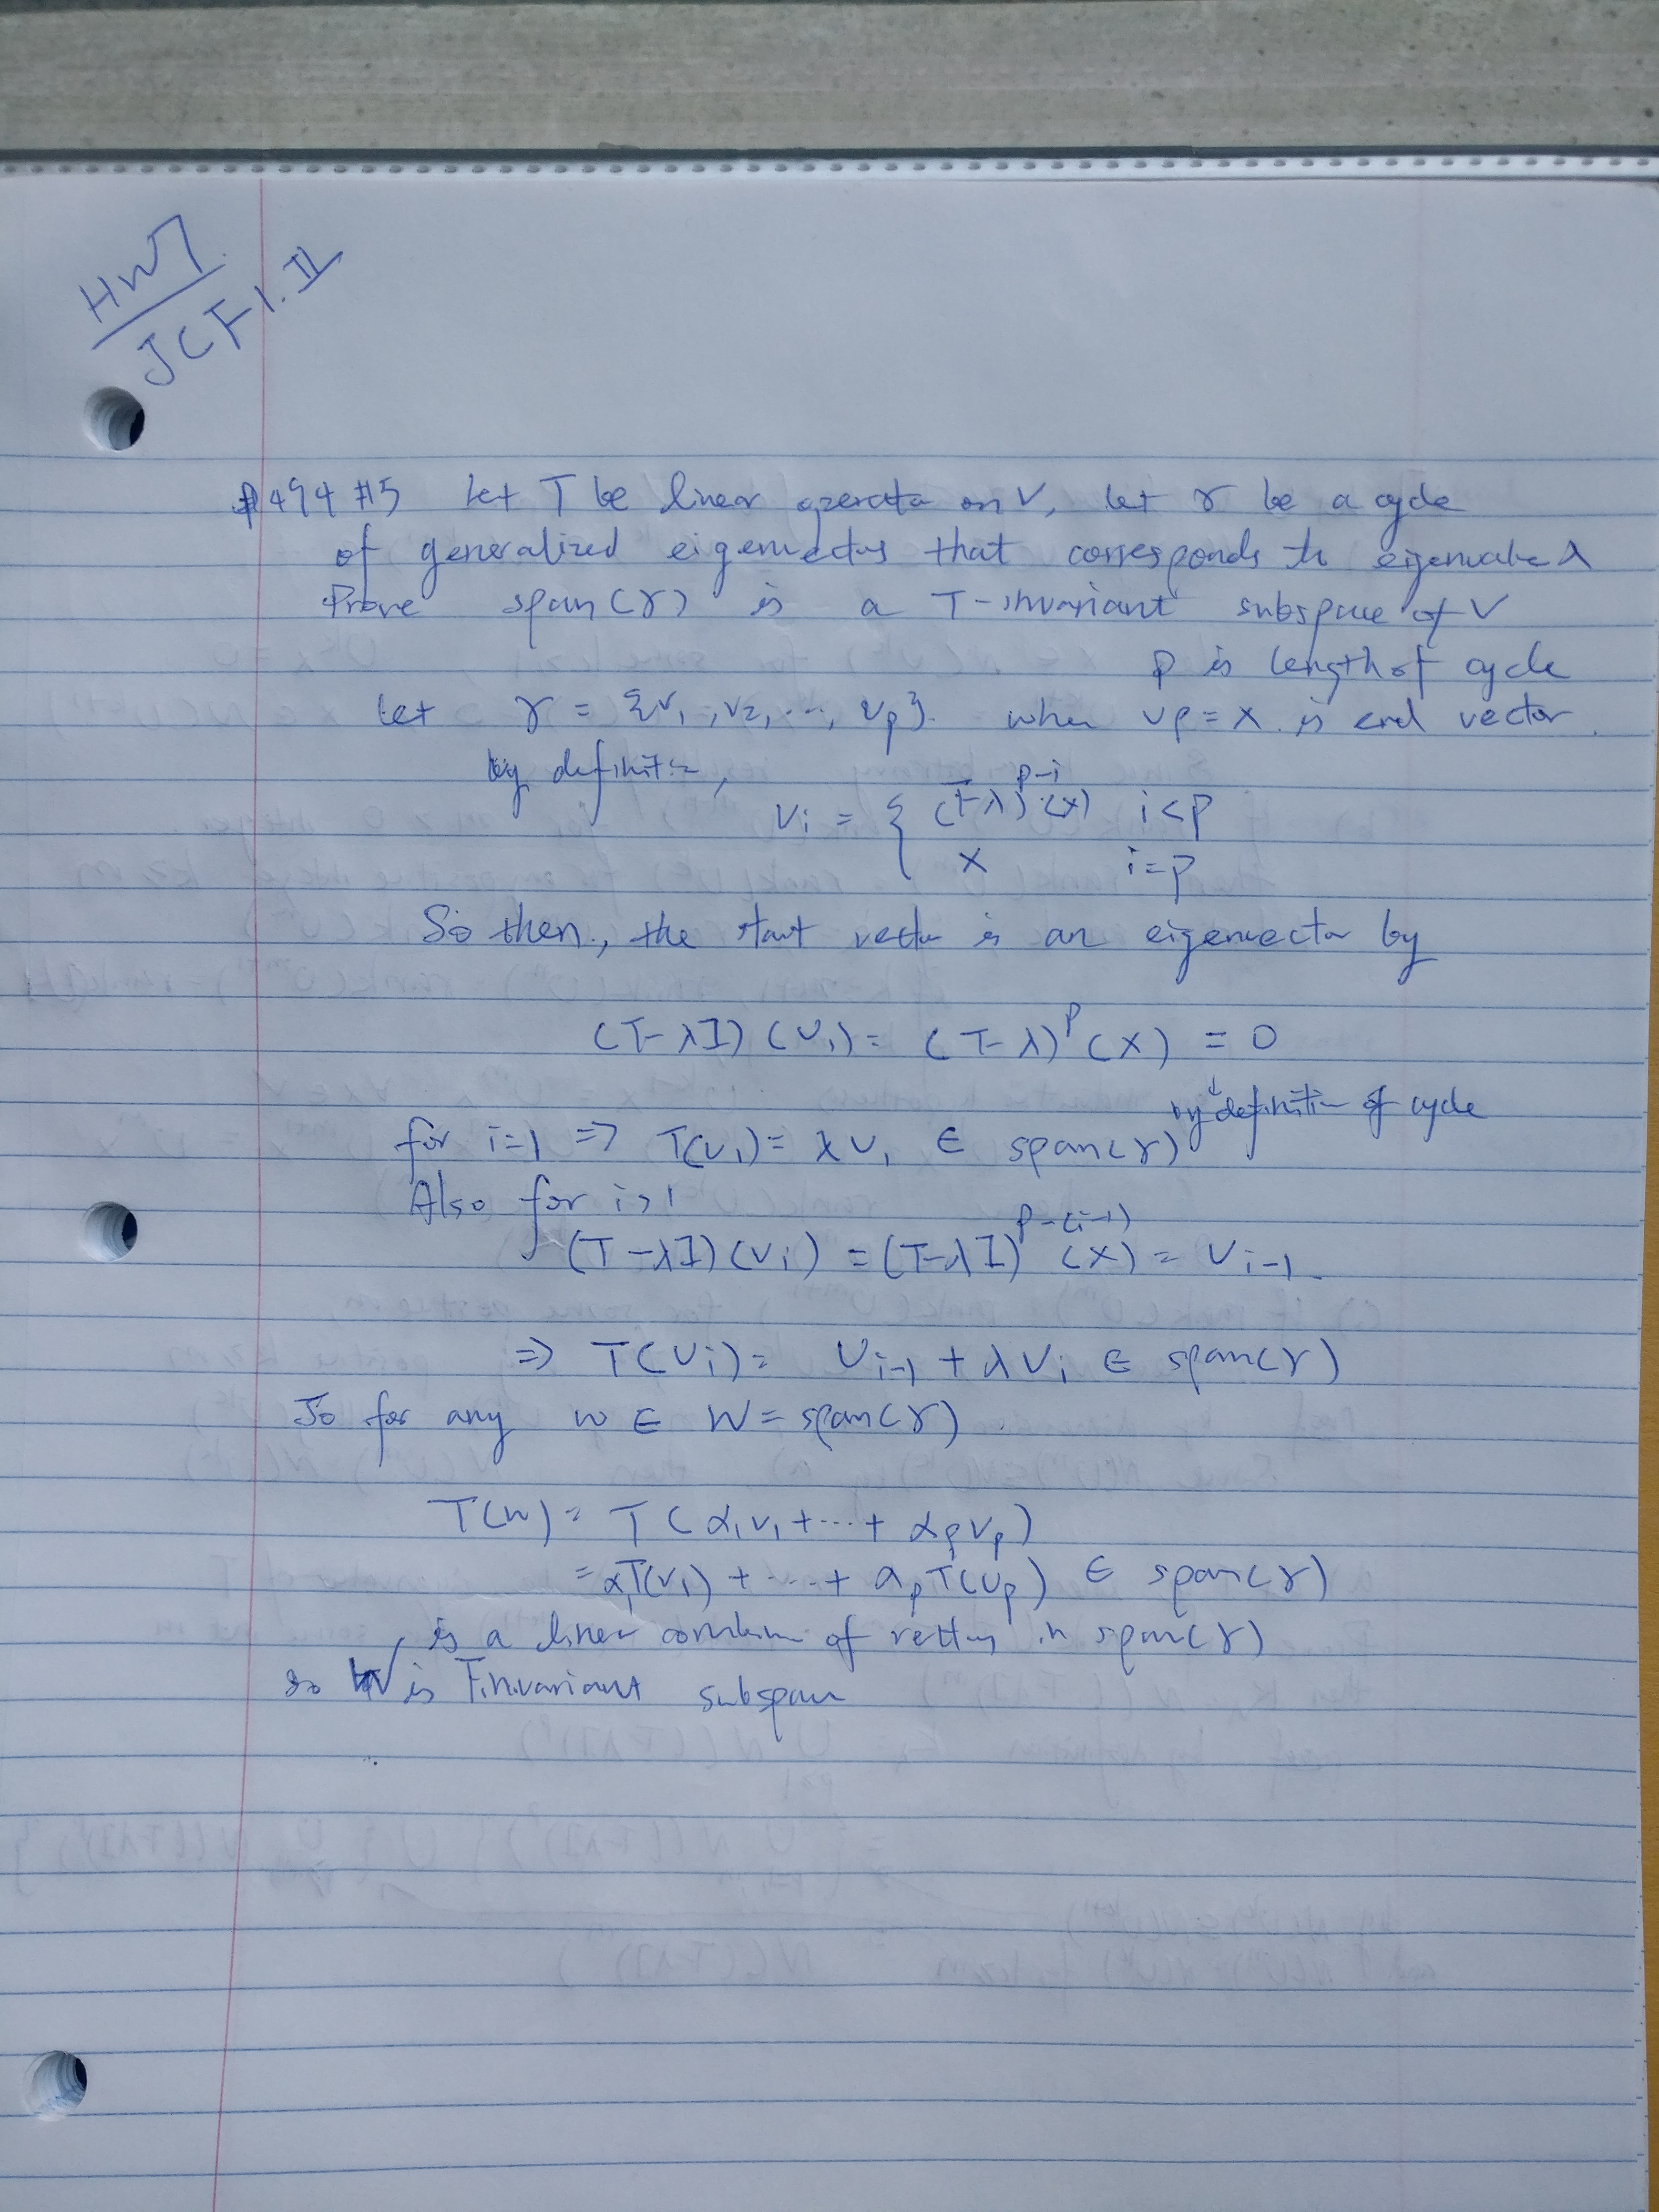 HW7.
JCF 1. II
p494 #5 Let T be linear operator on V, let γ be a cycle
of generalized eigenvectors that corresponds to eigenvalue λ
Prove span(γ) is a T-invariant subspace of V
p is length of cycle
Let γ = {v₁, v₂, ..., vₚ}. when vₚ = x. is end vector.
by definition,
vᵢ = { (T-λ)^{p-i}(x) i<p
x i=p
So then, the start vector is an eigenvector by
(T-λI)(v₁) = (T-λ)^p (x) = 0
↓
by definition of cycle
for i=1 => T(v₁) = λv₁ ∈ span(γ)
Also for i>1
(T-λI)(vᵢ) = (T-λI)^{p-(i-1)} (x) = vᵢ₋₁.
=> T(vᵢ) = vᵢ₋₁ + λvᵢ ∈ span(γ)
So for any w ∈ W = span(γ)
T(w) = T(α₁v₁ + ... + αₚvₚ)
= α₁T(v₁) + ... + aₚT(vₚ) ∈ span(γ)
is a linear combination of vectors in span(γ)
so W is T-invariant subspace